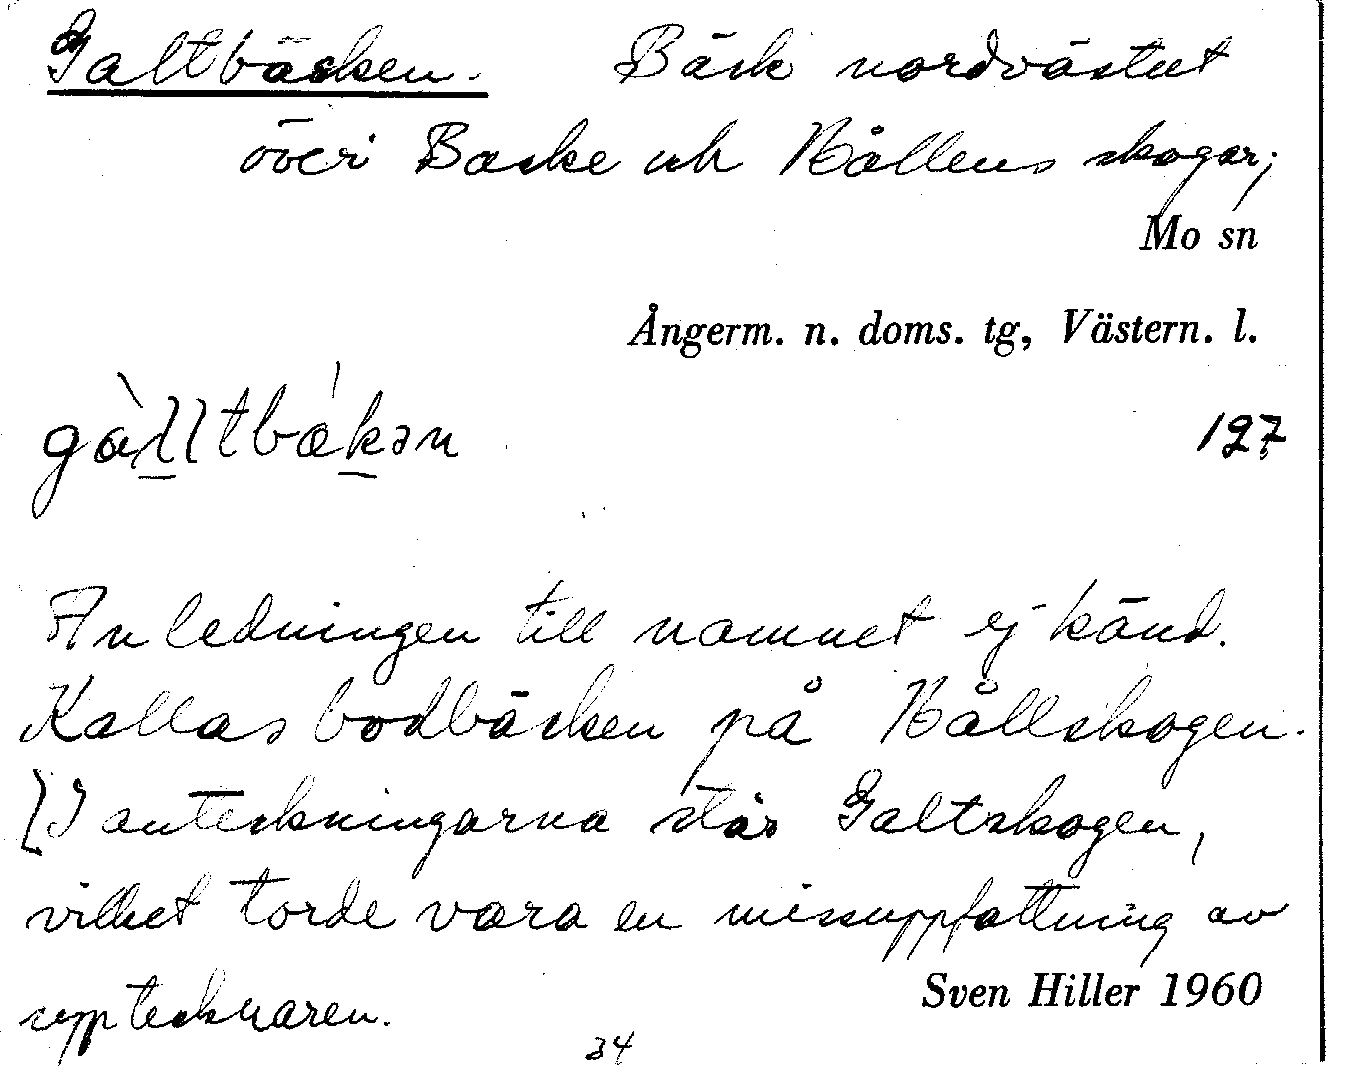 Galtbäcken. Bäck nordvästut
över Backe och Hållens skogar;
Mo sn
Ångerm. n. doms. tg, Västern. l.
gàlltbǽkən
127
Anledningen till namnet ej känd.
Kallas bodbäcken på Hållskogen.
[I anteckningarna står Galtskogen,
vilket torde vara en missuppfattning av
upptecknaren.
Sven Hiller 1960
34